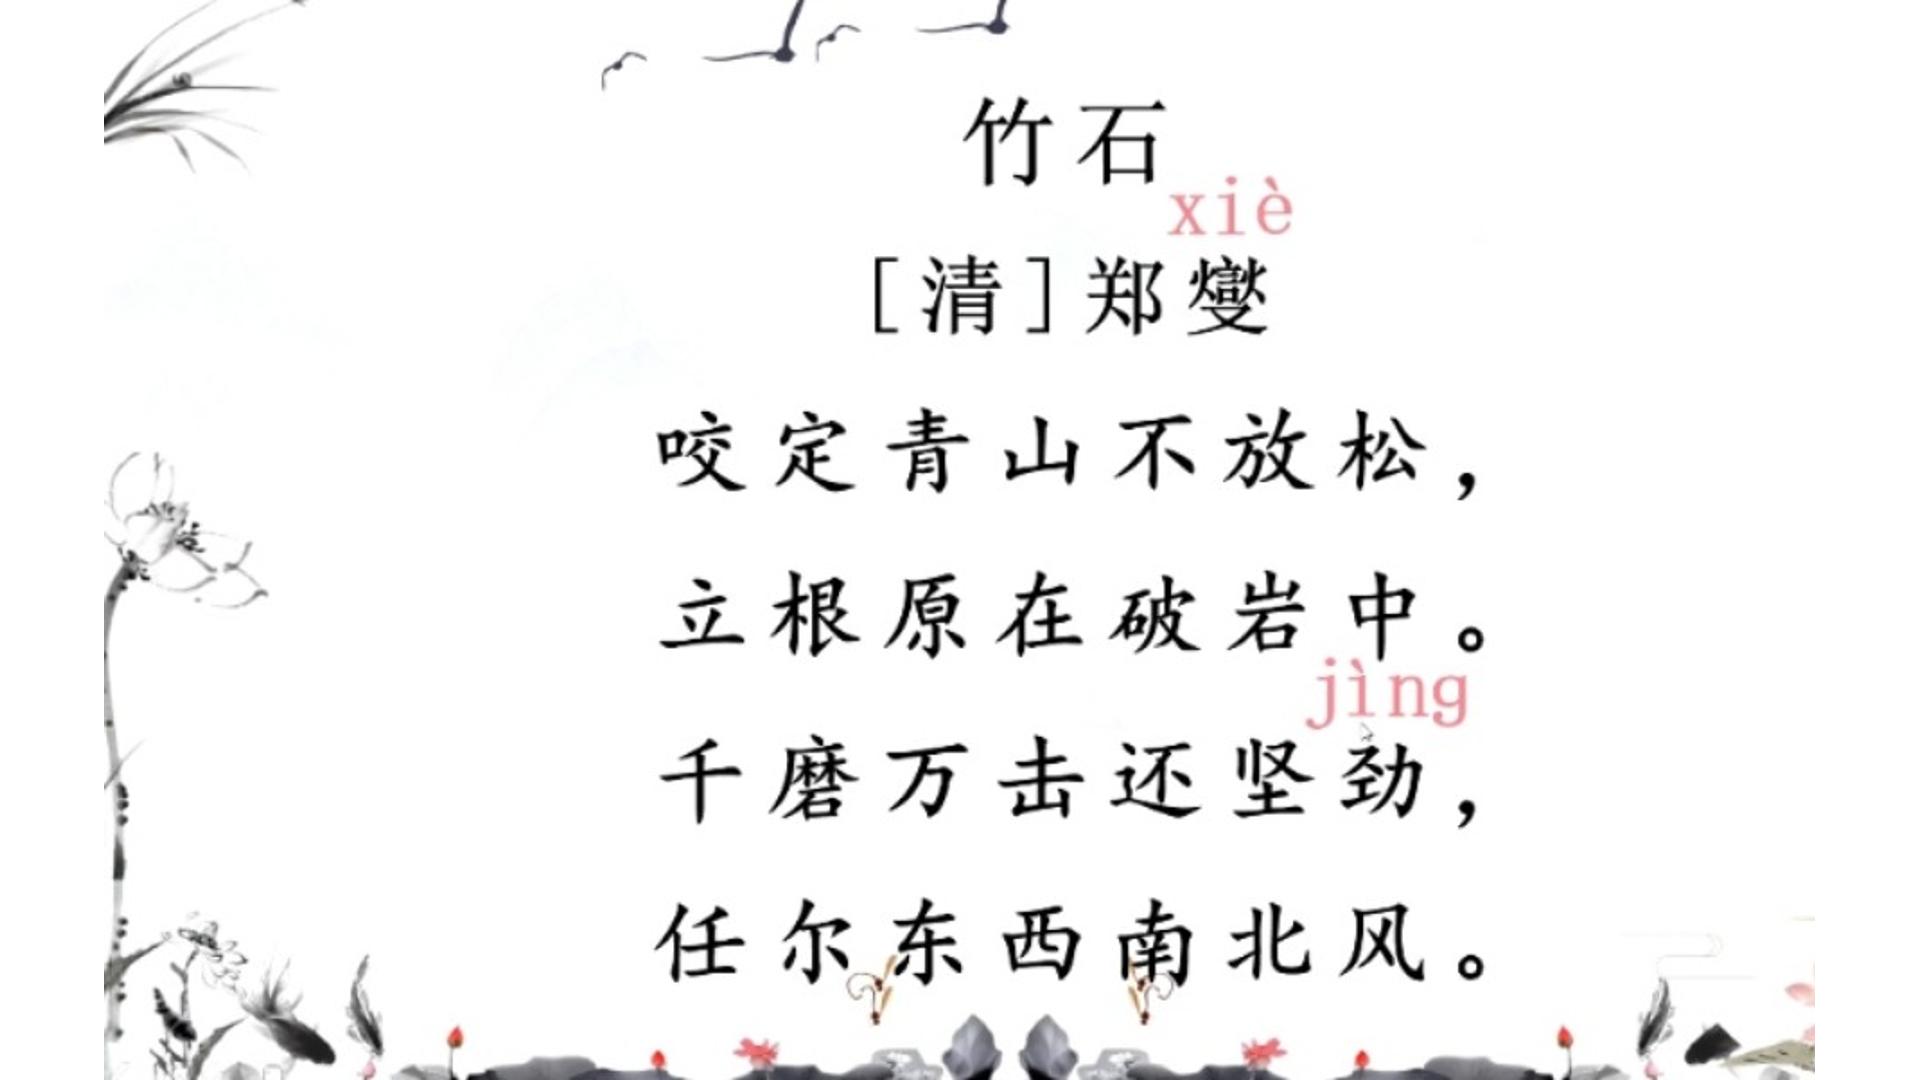 竹石
xiè
[清]郑燮
咬定青山不放松，
立根原在破岩中。
jìng
千磨万击还坚劲，
任尔东西南北风。